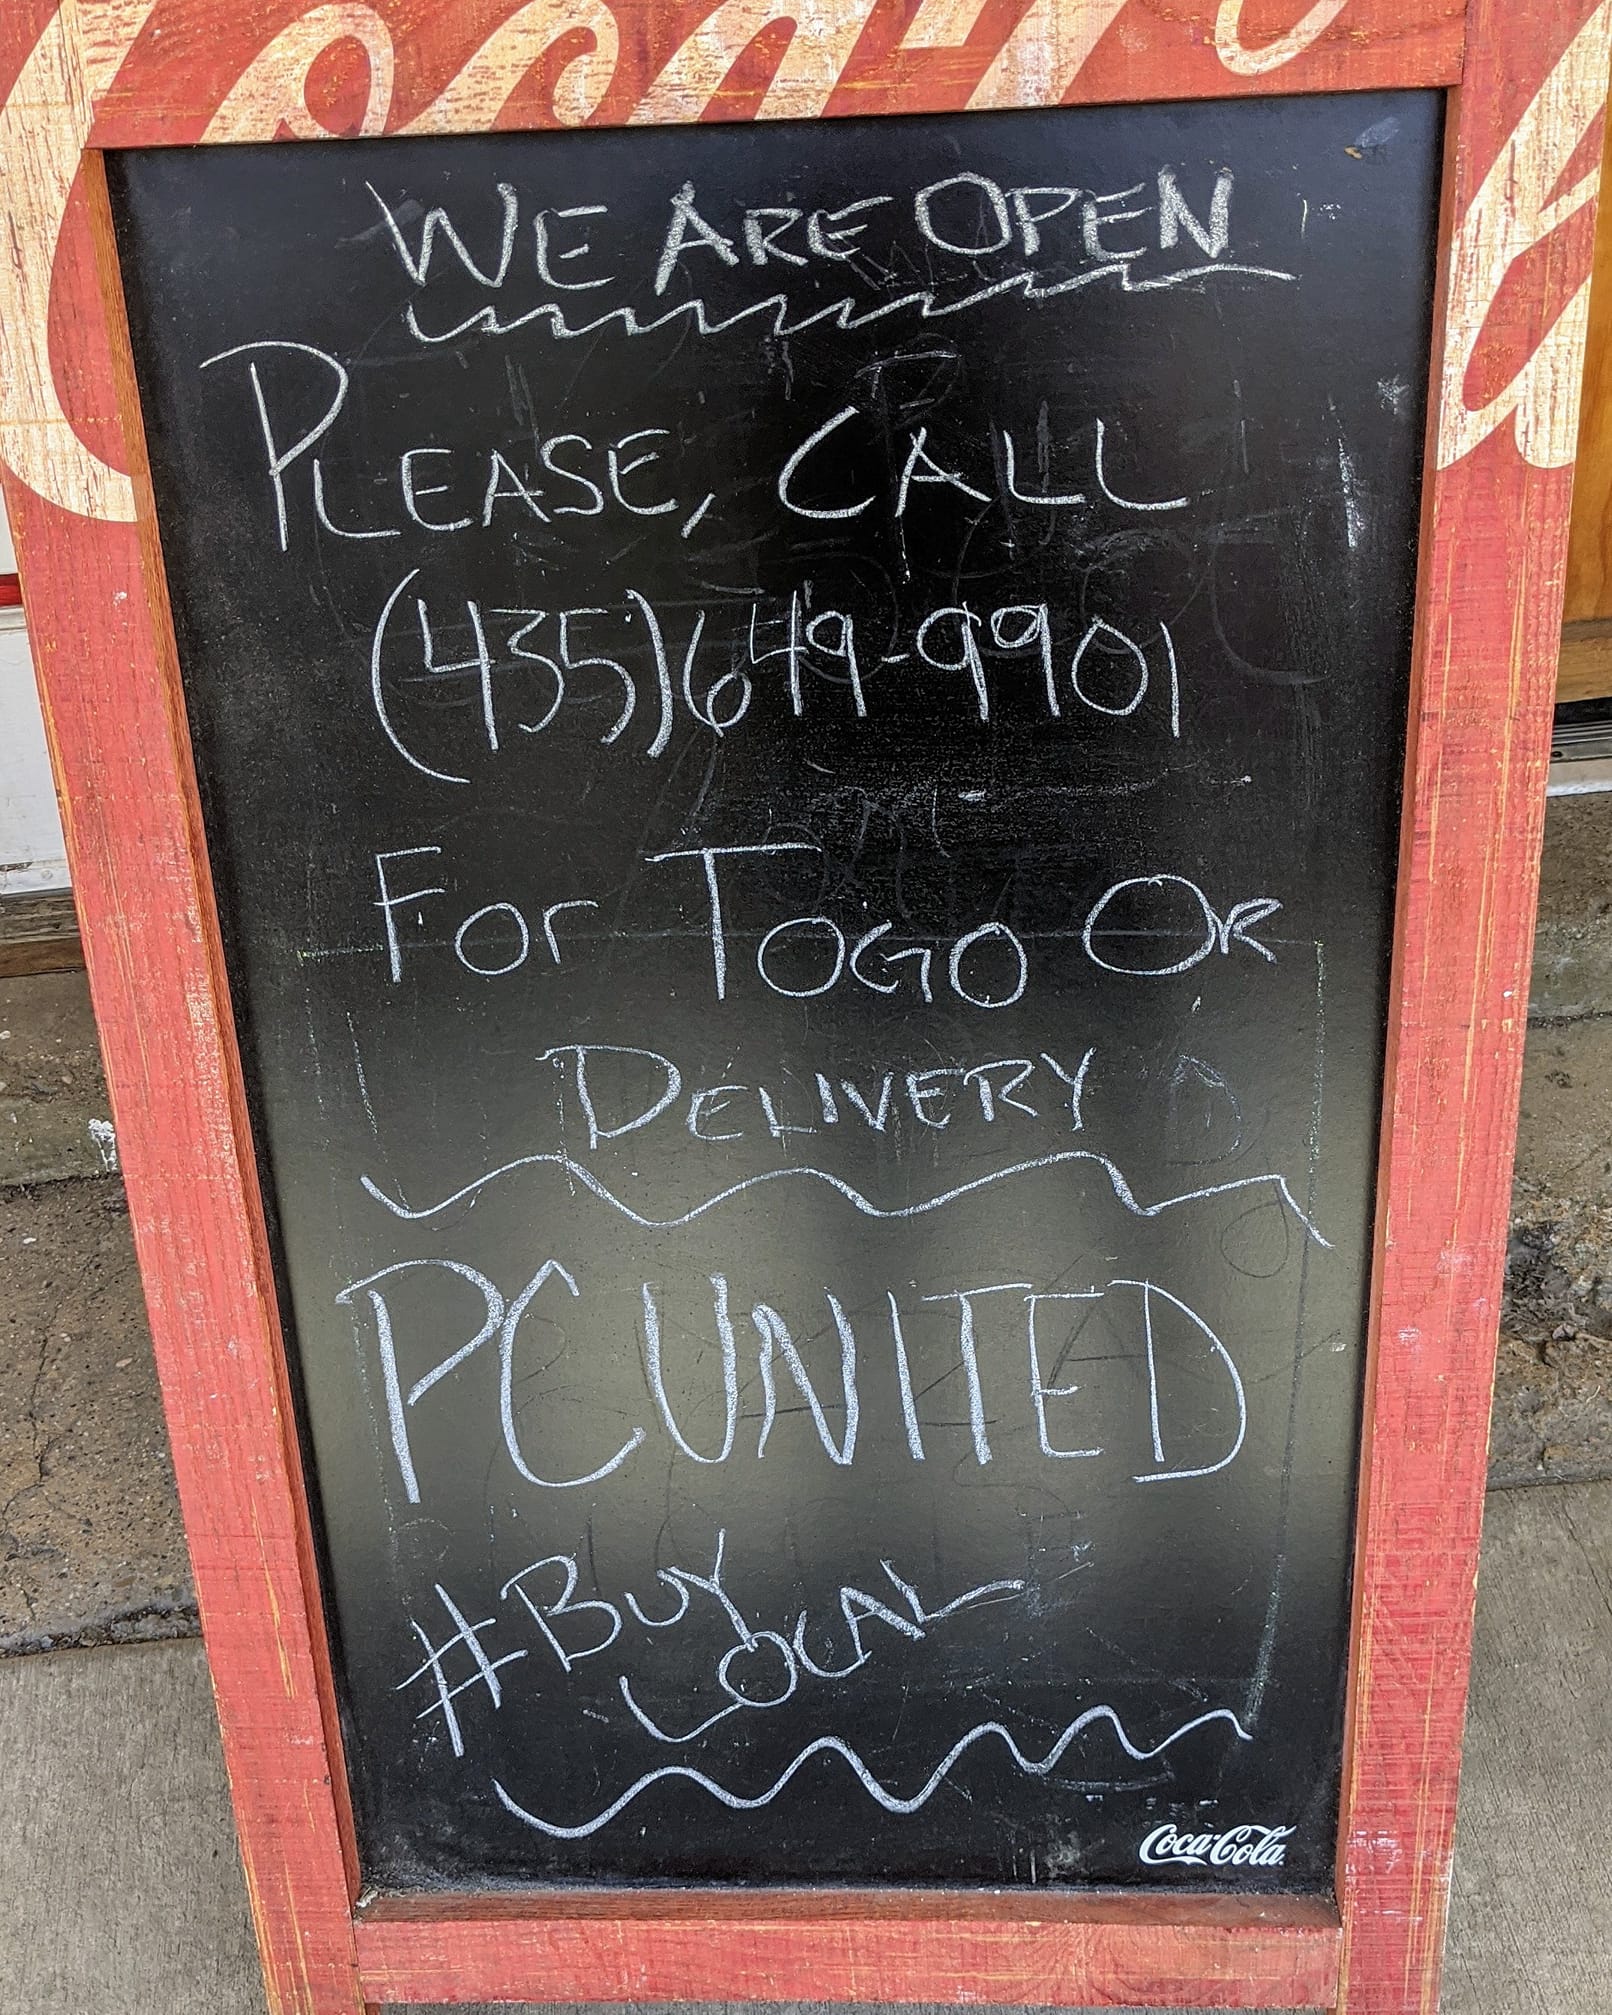 WE ARE OPEN
PLEASE, CALL
(435)649-9901
FOr TOGO OR
DELIVERY
PC UNITED
#BUY
LOCAL
Coca-Cola